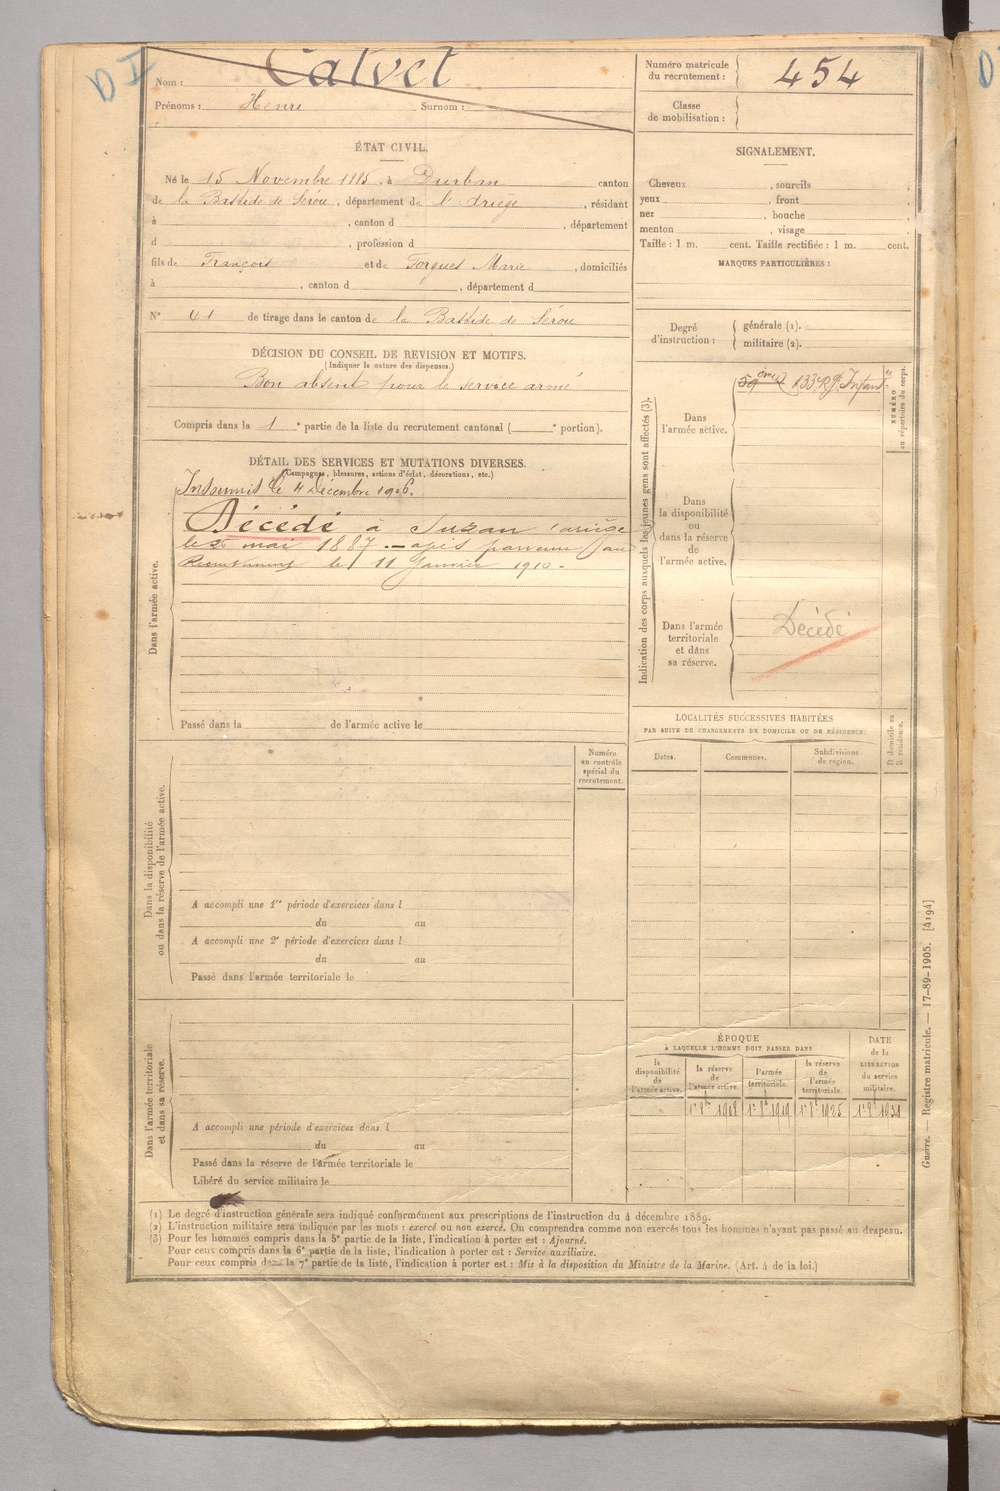 DI
Nom : Calvet
Prénoms : Henri Surnom :
ÉTAT CIVIL.
Né le 15 Novembre 1885, à Durban canton
de la Bastide de Sérou, département de l'Ariège, résidant
à , canton d , département
d , profession d
fils de François et de Forgues Marie, domiciliés
à , canton d , département d
N° 41 de tirage dans le canton de la Bastide de Sérou
DÉCISION DU CONSEIL DE REVISION ET MOTIFS.
(Indiquer la nature des dispenses.)
Bon absent pour le service armé
Compris dans la 1 e partie de la liste du recrutement cantonal ( e portion).
DÉTAIL DES SERVICES ET MUTATIONS DIVERSES.
(Campagnes, blessures, actions d'éclat, décorations, etc.)
Insoumis le 4 Décembre 1906.
Décédé à Suzan (ariège
le mai 1887 .— avis parvenu au
Recrutement le 11 Janvier 1910 -
Dans l'armée active.
Passé dans la de l'armée active le
Numéro
au contrôle
spécial du
recrutement.
Dans la disponibilité
ou dans la réserve de l'armée active.
A accompli une 1re période d'exercices dans l
du au
A accompli une 2e période d'exercices dans l
du au
Passé dans l'armée territoriale le
Dans l'armée territoriale
et dans sa réserve.
A accompli une période d'exercices dans l
du au
Passé dans la réserve de l'armée territoriale le
Libéré du service militaire le
Numéro matricule
du recrutement : 454
Classe
de mobilisation :
SIGNALEMENT.
Cheveux , sourcils
yeux , front ,
nez , bouche ,
menton , visage
Taille : 1 m. cent. Taille rectifiée : 1 m. cent.
MARQUES PARTICULIÈRES :
Degré
d'instruction :
générale (1).
militaire (2).
Indication des corps auxquels les jeunes gens sont affectés (3).
NUMÉRO
au répertoire du corps.
59ème 133e Rgt Infant
Dans
l'armée active.
Dans
la disponibilité
ou
dans la réserve
de
l'armée active.
Dans l'armée
territoriale
et dans
sa réserve.
Décédé
LOCALITÉS SUCCESSIVES HABITÉES
PAR SUITE DE CHANGEMENTS DE DOMICILE OU DE RÉSIDENCE.
Dates.
Communes.
Subdivisions
de région.
D domicile ou
R résidence.
ÉPOQUE
À LAQUELLE L'HOMME DOIT PASSER DANS
la
disponibilité
de
l'armée active.
la réserve
de
l'armée active.
l'armée
territoriale.
la réserve
de
l'armée
territoriale.
DATE
de la
LIBÉRATION
du service
militaire.
1er 8bre 1908 1er 8bre 1919 1er 8bre 1925 1er 8bre 1931
Guerre. — Registre matricule. — 17-89-1905. [4194]
(1) Le degré d'instruction générale sera indiqué conformément aux prescriptions de l'instruction du 4 décembre 1889.
(2) L'instruction militaire sera indiquée par les mots : exercé ou non exercé. On comprendra comme non exercés tous les hommes n'ayant pas passé au drapeau.
(3) Pour les hommes compris dans la 5e partie de la liste, l'indication à porter est : Ajourné.
Pour ceux compris dans la 6e partie de la liste, l'indication à porter est : Service auxiliaire.
Pour ceux compris dans la 7e partie de la liste, l'indication à porter est : Mis à la disposition du Ministre de la Marine. (Art. 4 de la loi.)